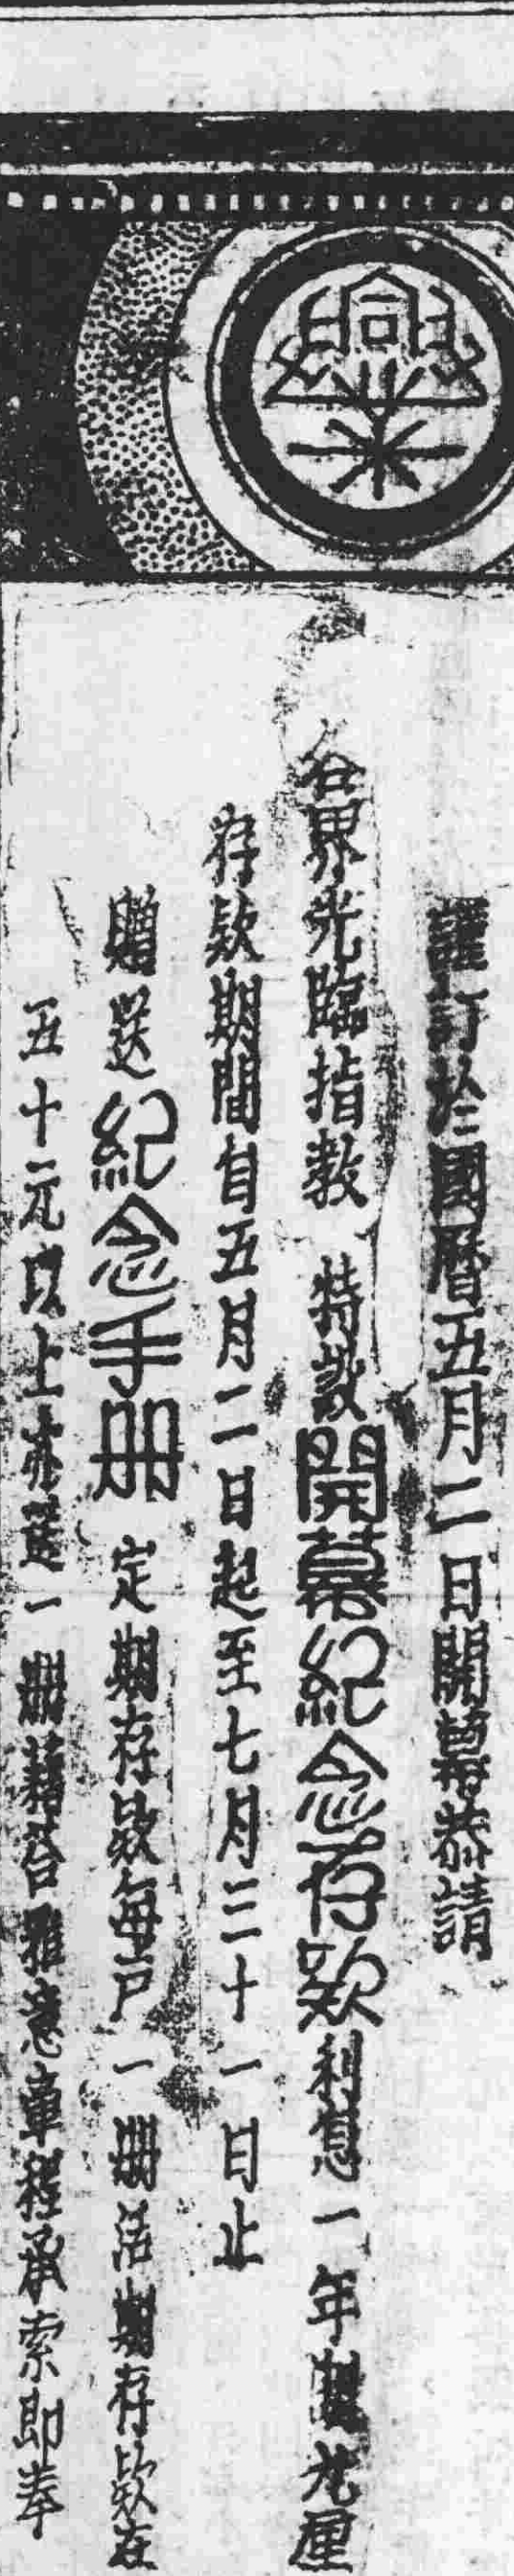 謹訂於國曆五月二日開幕恭請
各界光臨指教 特設開幕紀念存款利息一年期九厘
存款期間自五月二日起至七月三十一日止
贈送紀念手册 定期存款每戶一册活期存款在
五十元以上亦送一册藉答雅意章程承索即奉